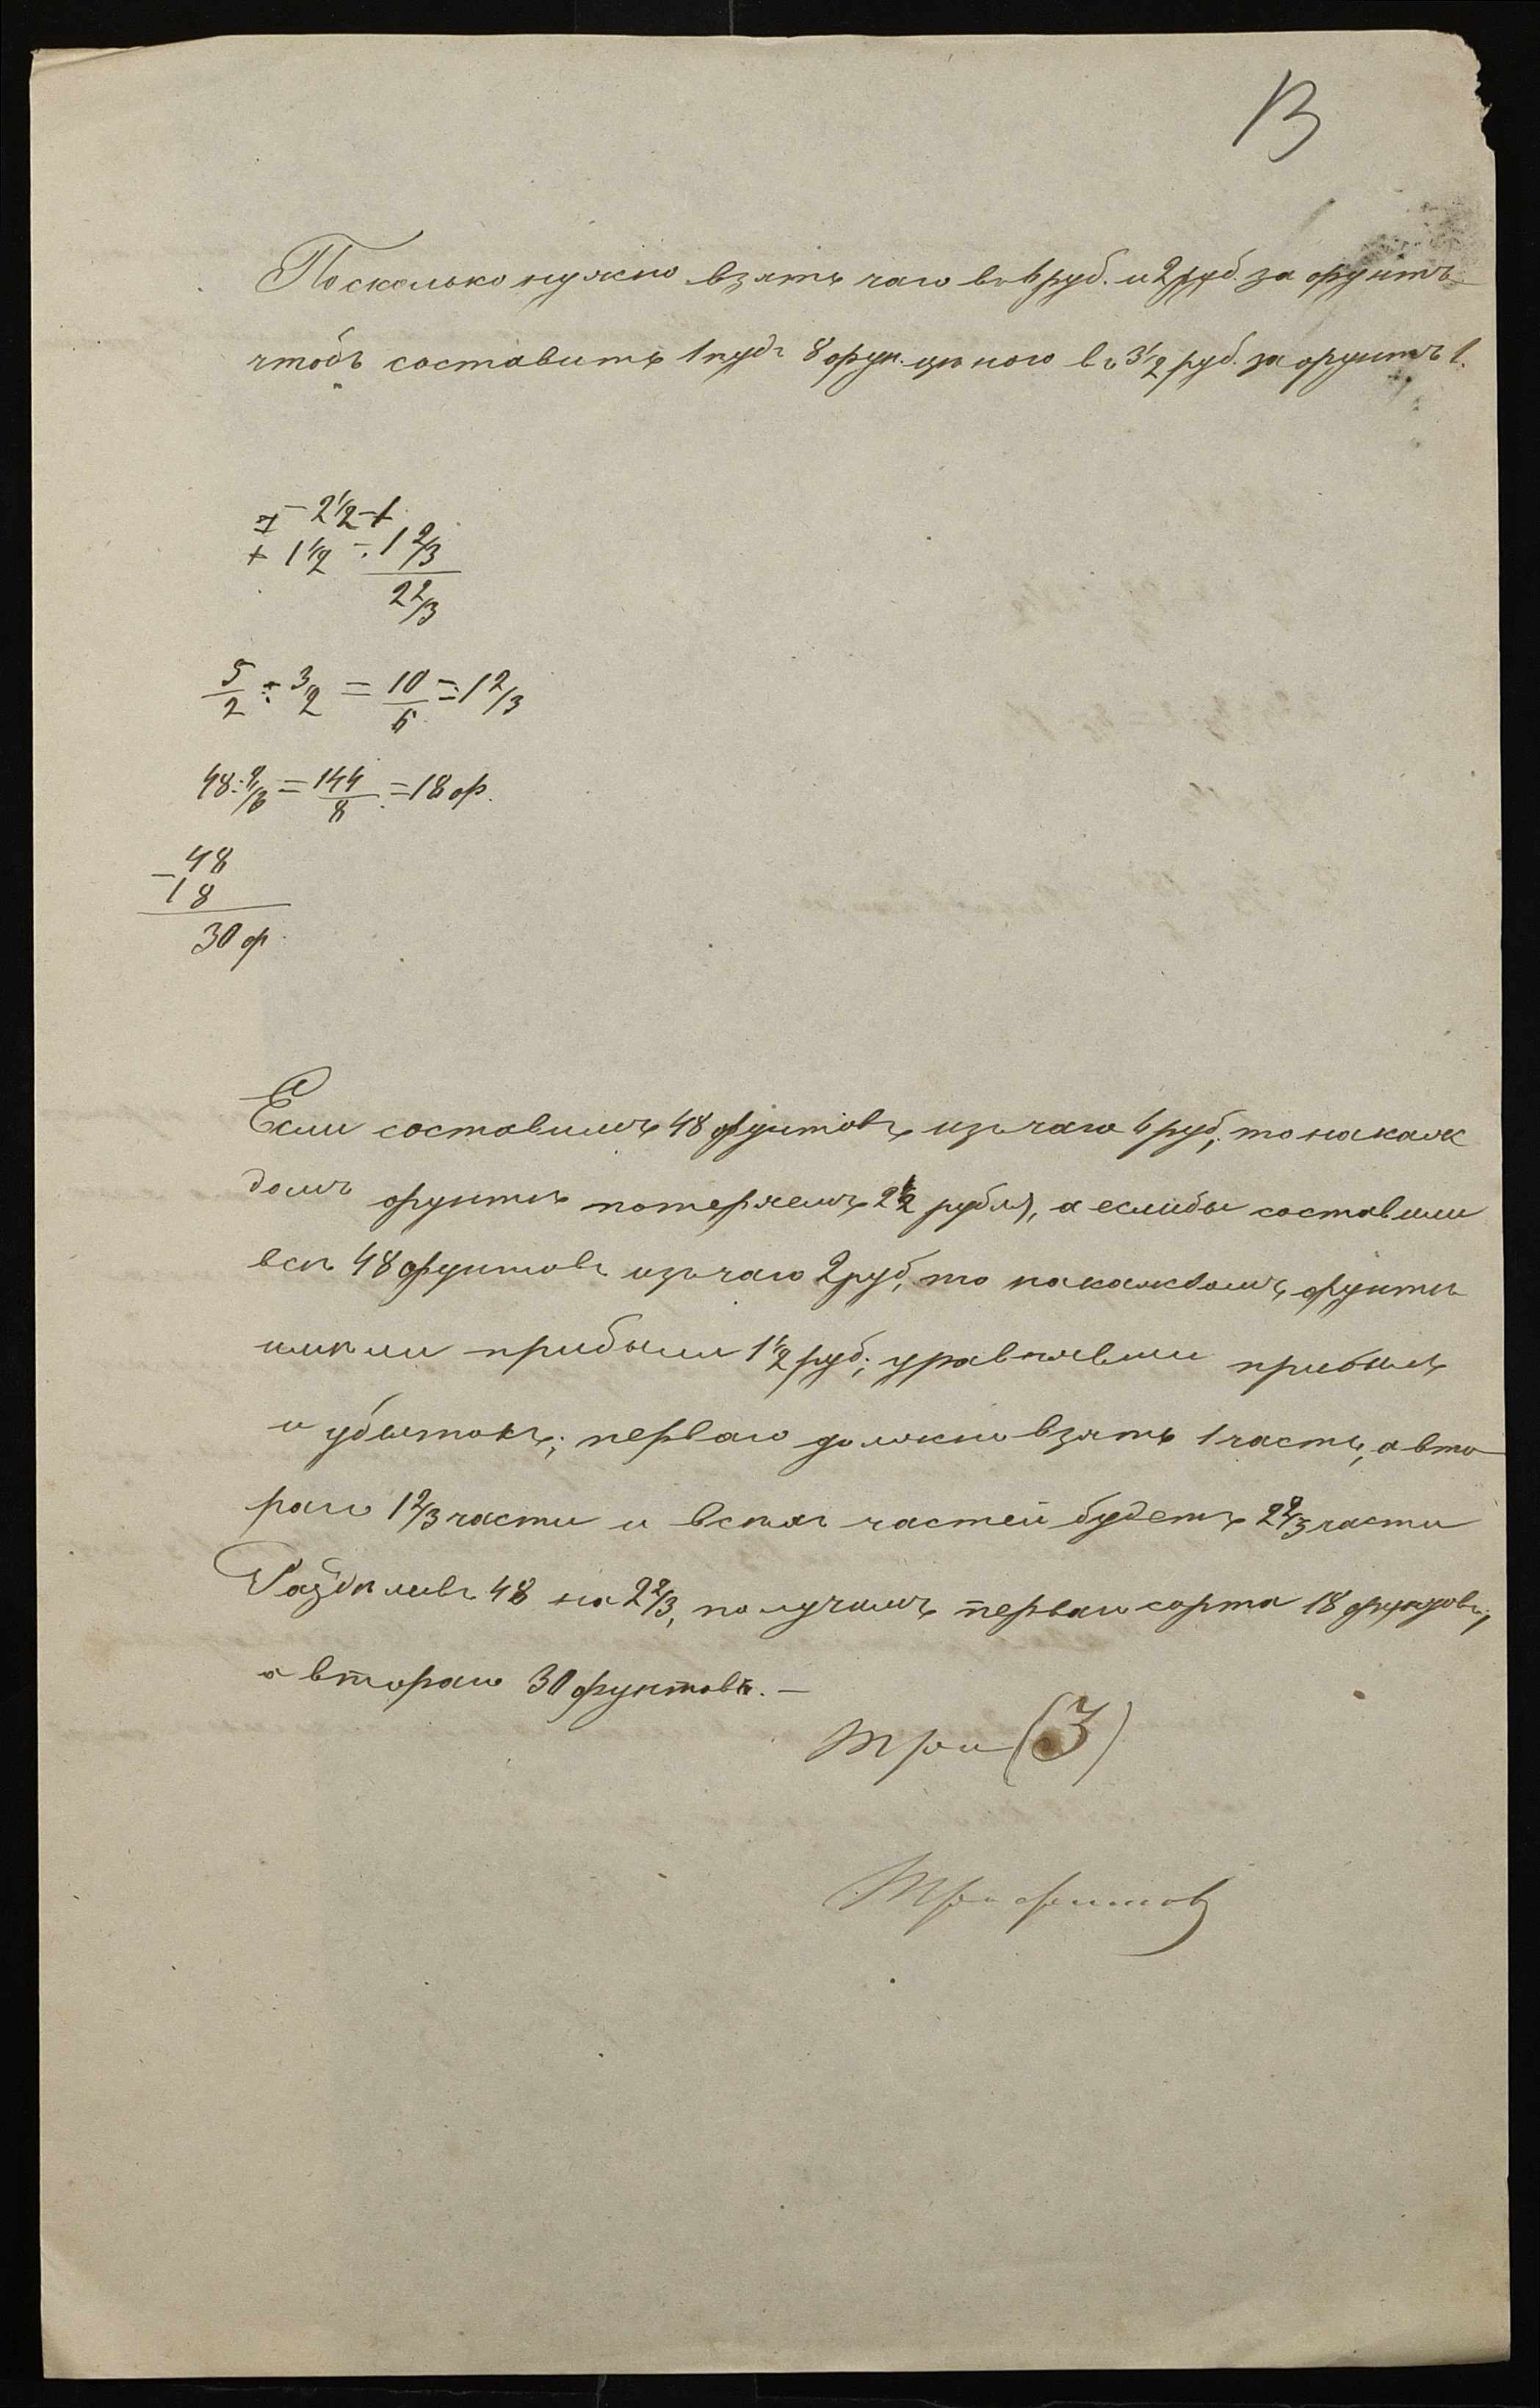 В
Посколько нужно взять чаю въ 6 руб. и 2 руб. за фунтъ
чтобъ составить 1 пудъ 8 фун. цѣною въ 3 1/2 руб. за фунтъ?
- 2 1/2 - 1
+ 1 1/2 - 1 2/3
2 2/3
5/2 : 3/2 = 10/6 = 1 2/3
48 : 8/3 = 144/8 = 18 ф.
48
- 18
30 ф.
Если составимъ 48 фунтовъ изъ чаю 6 руб, то на каж
домъ фунтѣ потеряемъ 2 1/2 рубля, а если бы составили
всѣ 48 фунтовъ изъ чаю 2 руб, то на каждомъ фунтѣ
имѣли прибыли 1 1/2 руб; уравнявши прибыль
и убытокъ; перваго должно взять 1 часть, а вто
раго 1 2/3 части и всѣхъ частей будетъ 2 2/3 части
Раздѣливъ 48 на 2 2/3, получимъ перваго сорта 18 фунтовъ,
а втораго 30 фунтовъ. —
три (3)
Трофимов